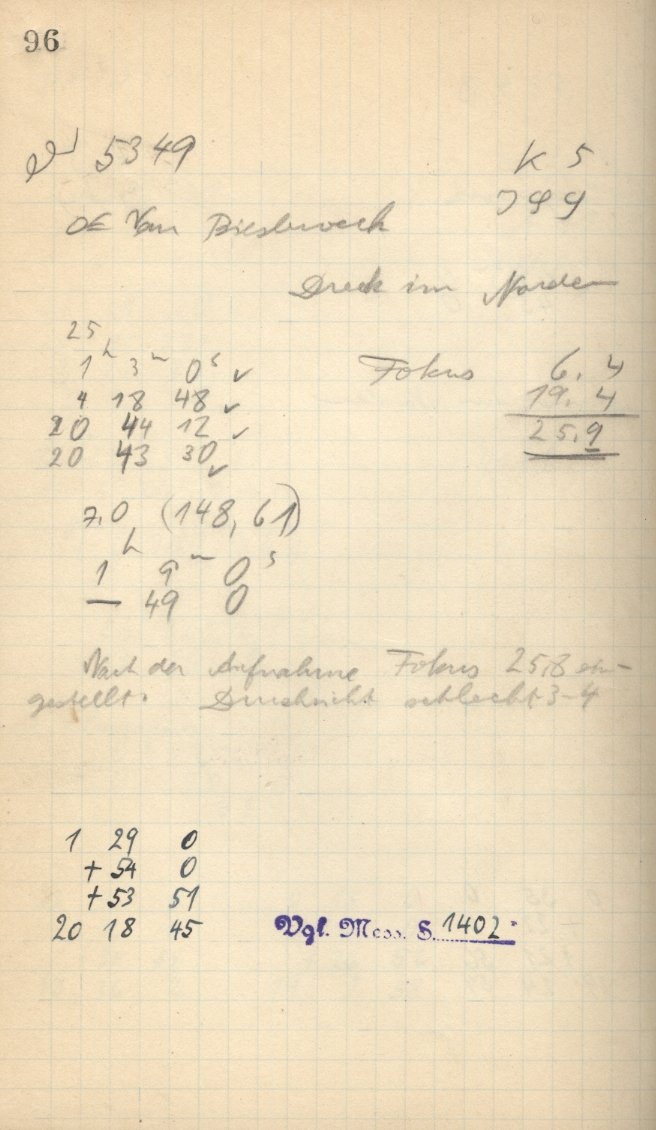 96
5349
K 5
J99
OE Van Biesbroeck
Dreck im Norden
25
1ʰ 3ᵐ 0ˢ ✓
4 18 48 ✓
20 44 12 ✓
20 43 30 ✓
Fokus 6.4
19.4
25,9
7,0 (148,61)
1ʰ 9ᵐ 0ˢ
— 49 0
Nach der Aufnahme Fokus 25,8 ein-
gestellt. Durchsicht schlecht 3-4
1 29 0
+ 54 0
+ 53 51
20 18 45
Vgl. Mess. S. 1402